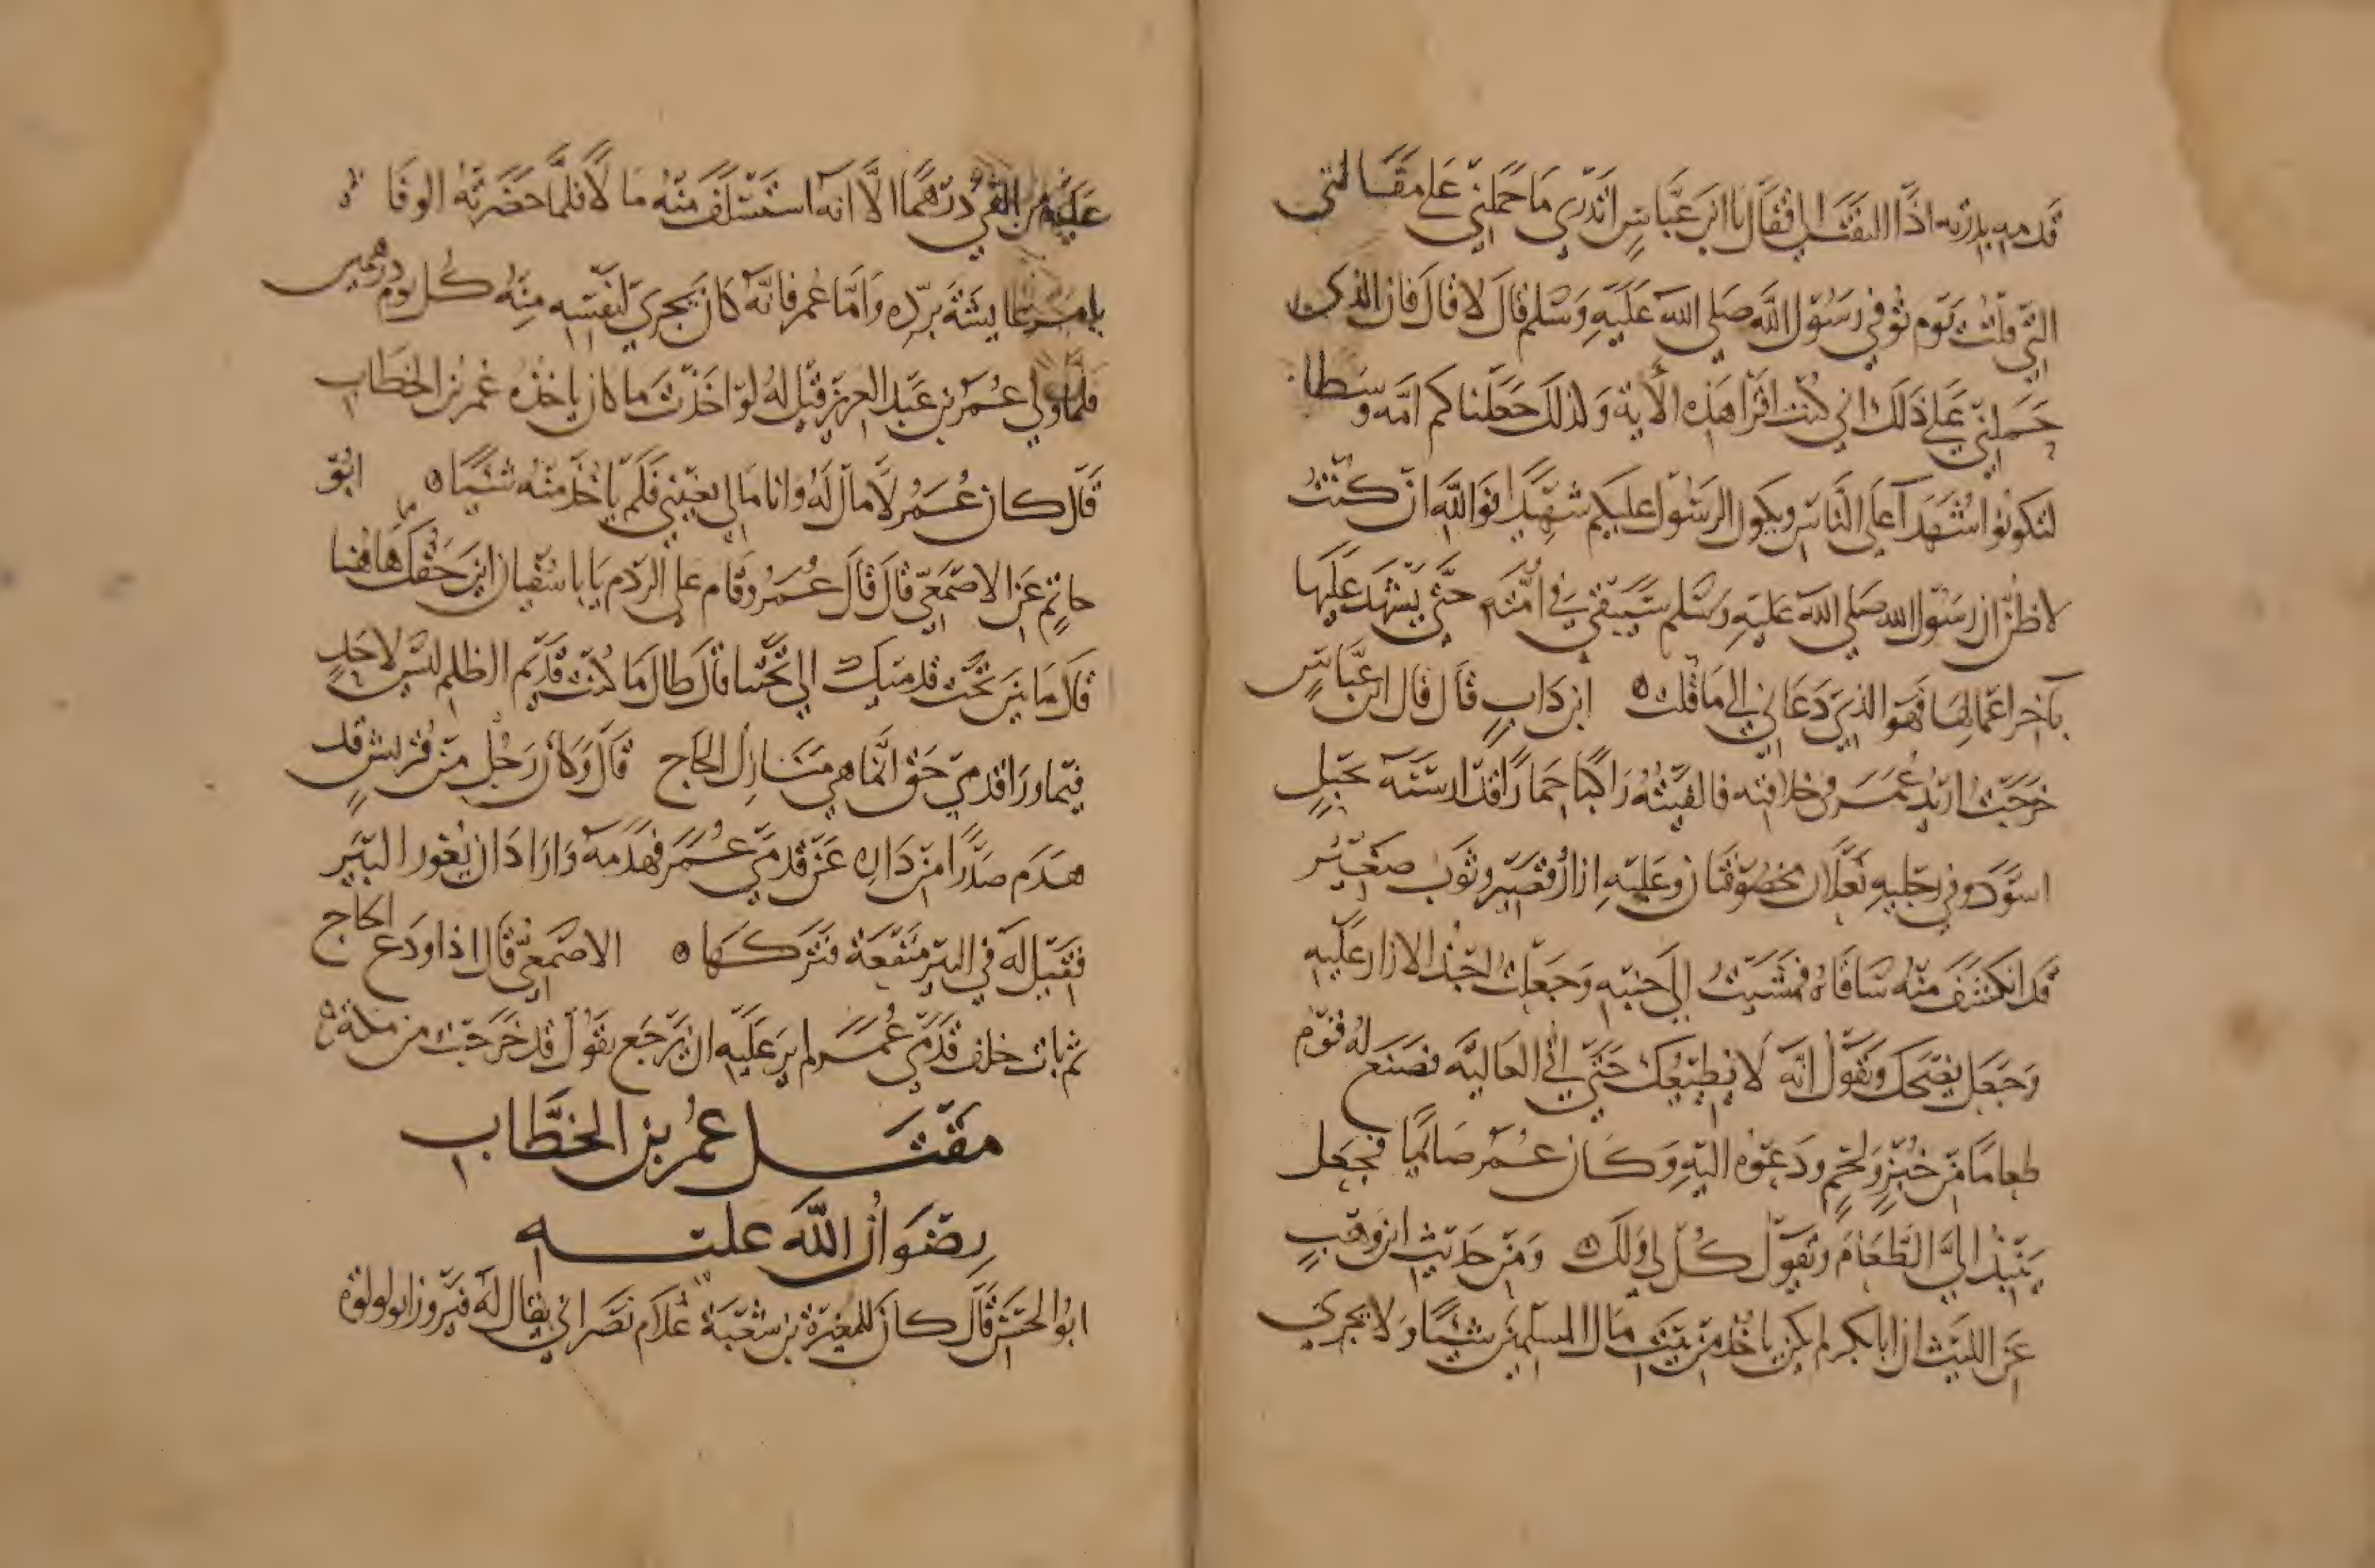 قدميه بدرته اذا التفت الي فقال يا ابن عباس اتدري ما حملني على مقالتي
التي قلت يوم توفي رسول الله صلى الله عليه وسلم قال لا قال فان الذي
حملني على ذلك اني كنت اقرا هذه الاية وكذلك جعلناكم امه وسطا
لتكونوا شهدآ على الناس ويكول الرسول عليكم شهيدا فوالله ان كنت
لاظن ان رسول الله صلى الله عليه وسلم سيبقى في امته حتى يشهد عليها
بآخر اعمالها فهو الذي دعاني الى ما قلت ه ابن داب قال قال ابن عباس
خرجت اريد عمر في خلافته فالفيته راكبا حمارا قد ارسنه بحبل
اسود وفي رجليه نعلان مخصوفتان وعليه ازار قصير وثوب صغير
قد انكشف منه ساقاه فمشيت الى جنبه وجعلت اجبذ الازار عليه
وجعل يضحك ويقول انه لا يطيعك حتى اتى العاليه فصنع له قوم
طعاما من خبز ولحم ودعوه اليه وكان عمر صائما فجعل
ينبذ الي الطعام ويقول كل لي ولك ه ومن حديث ابن وهب
عن الليث ان ابا بكر لم يكن ياخذ من بيت مال المسلمين شيئا ولا يجري
عليه من الفي درهما الا انه استسلف منه مالا فلما حضرته الوفاة
امر عايشة برده واما عمر فانه كان يجري لنفسه منه كل يوم درهمين
فلما ولي عمر بن عبد العزيز قيل له لو اخذت ما كان ياخذه عمر بن الخطاب
قال كان عمر لا مال له وانا مالي يغنيني فلم ياخذ منه شيئا ه ابو
حاتم عن الاصمعي قال قال عمر وقام على الردم يابا سفيان اين حقك هاهنا
قال ما بين تحت قدميك الي تحتنا قال طال ما كنت قديم الظلم ليس لاحد
فيما ورا قدمي حق انما هي منازل الحاج قال وكان رجل من قريش قد
هدم صدرا من داره عن قدمي عمر فهدمه واراد ان يغور البير
فقيل له في البير منفعة فتركها ه الاصمعي قال اذا ودع الحاج
ثم بات خلف قدمي عمر لم ير عليه ان يرجع يقول قد خرجت من مكة ه
مقتل عمر بن الخطاب
رضوان الله عليه
ابو الحسن قال كان للمغيرة بن شعبة غلام نصراني يقال له فيروز ابو لولوة